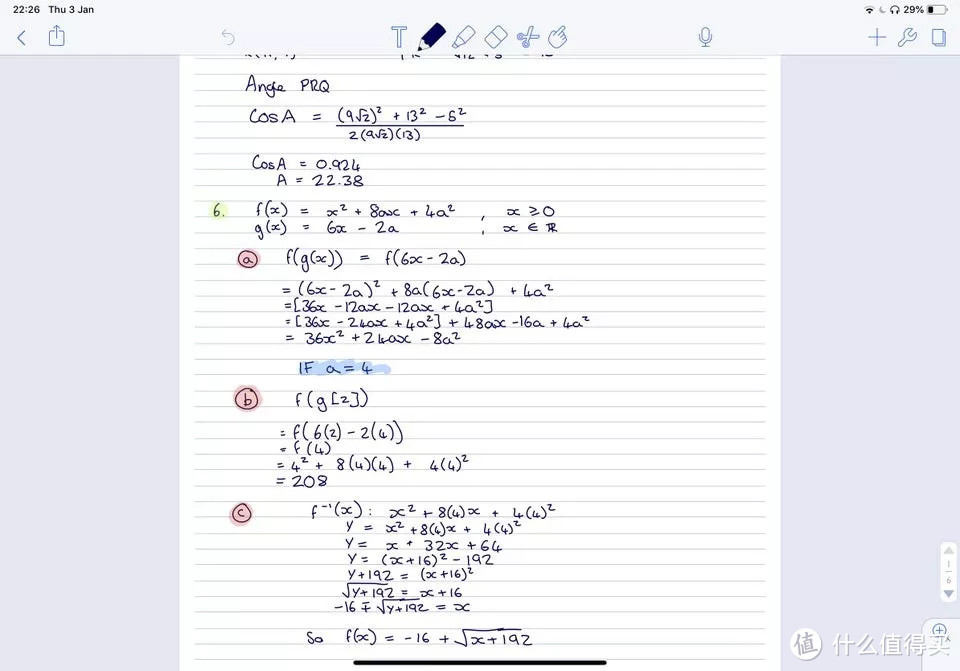 22:26 Thu 3 Jan 29%
Angle PRQ
Cos A = (9√2)² + 13² - 5² / 2(9√2)(13)
Cos A = 0.924
A = 22.38
6. f(x) = x² + 8ax + 4a² , x ≥ 0
g(x) = 6x - 2a , x ∈ ℝ
a f(g(x)) = f(6x - 2a)
= (6x - 2a)² + 8a(6x - 2a) + 4a²
= [36x - 12ax - 12ax + 4a²]
= [36x - 24ax + 4a²] + 48ax - 16a + 4a²
= 36x² + 24ax - 8a²
IF a = 4
b f(g[2])
= f(6(2) - 2(4))
= f(4)
= 4² + 8(4)(4) + 4(4)²
= 208
c f⁻¹(x) : x² + 8(4)x + 4(4)²
Y = x² + 8(4)x + 4(4)²
Y = x + 32x + 64
Y = (x+16)² - 192
Y+192 = (x+16)²
√Y+192 = x+16
-16 ∓ √Y+192 = x
So f(x) = -16 + √x+192
1
6
值 什么值得买